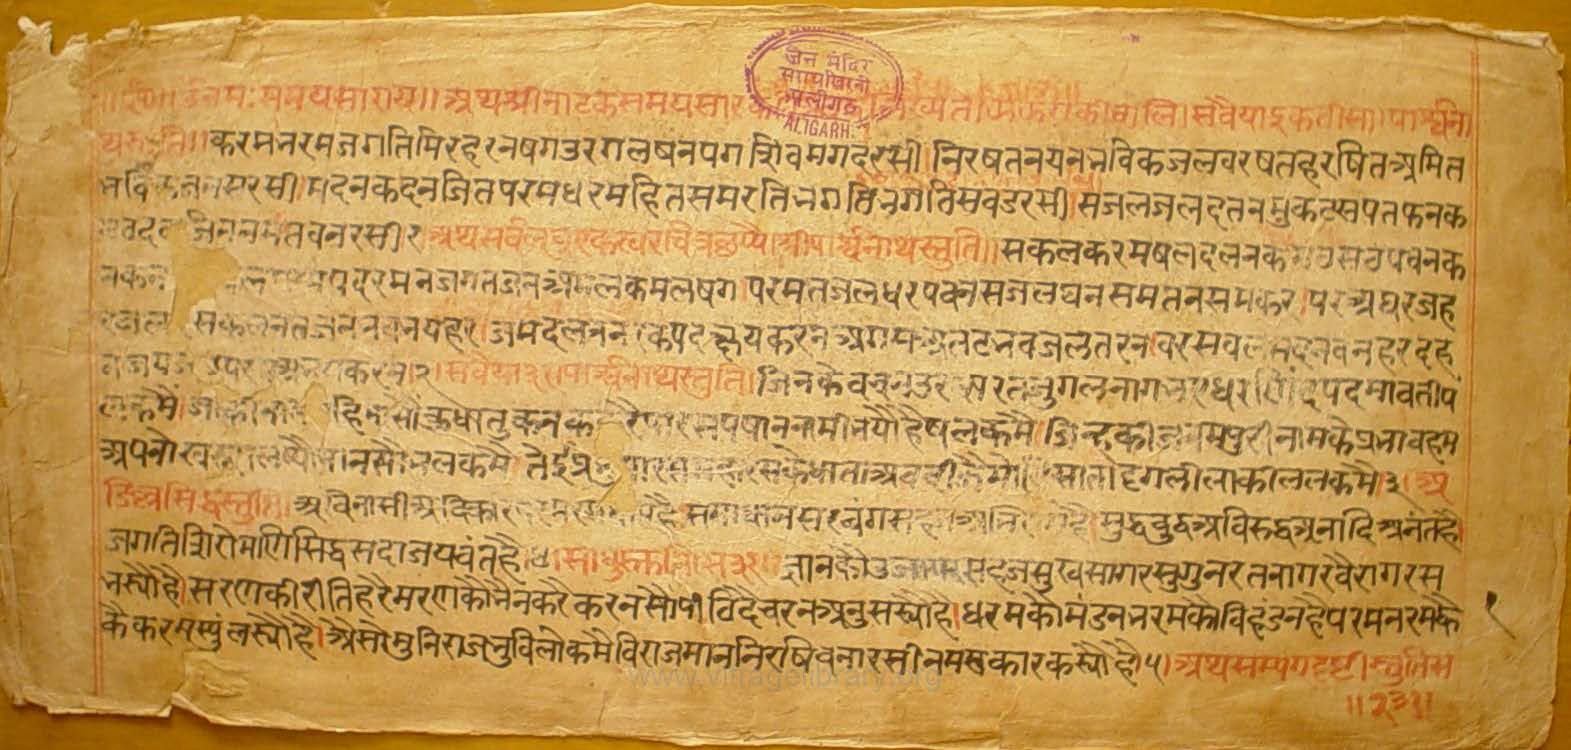 जैन मंदिर
अलीगढ़
ALIGARH
नमः समयसाराय॥ अथ श्री नाटक समयसार लिष्यते सवैया इकतीसा पार्श्वना
थस्तुति॥ करमभरमजगतिमिरहरनषगउरगलषनपगशिवमगदरसी। निरषतनयनभविकजलवरषतहरषितअमित
भविकजनसरसी। मदनकदनजितपरमधरमहितसमरतिभगतिभगतिसवडरसी। सजलजलदतनमुकटसपतफनक
जिननमतवनरसी१ अथसर्वलघु छप्पै श्रीपार्श्वनाथस्तुति॥ सकलकरमषलदलनकमठसठपवनक
पदरमनजगतजनअमलकमलषग। परमतजलधरपवनसजलघनसमतनसमकर। परअघरजहर
सकलनतजनभवभयहर। जमदलननरकपदछयकरनअगमअतटभवजलतरन। वरसवलमदनवनहरदह
२। सवैया३१ पार्श्वनाथस्तुति। जिनकेवचनउरधारतजुगलनागभएधरणिंदपदमावतीप
लकमै। जाकीनाममहिमासौकुधातुकनककरैपारसपषाननामीभयौहैषलकमै। जिन्हकीजनमपुरीनामकेप्रभावहम
अपनौस्वरूपलष्यौभानसौभलकमै। तेईप्रभुपारसमहारसकेदाताअवदीजैमोहिसातादृगलीलाकीललकमै३। अ
डिल्लसिद्धस्तुति। अविनासीअविकारपरमरसधामहै। समाधानसरवंगसहजअभिरामहै। सुद्धबुद्धअविरुद्धअनादिअनंतहै।
जगतिशिरोमणिसिद्धसदाजयवंतहै।४। साधुस्तुति स३१॥ ज्ञानकौउजागरसहजसुखसागरसुगुनरतनागरवैरागरस
भस्यौहै। सरणकीरीतिहरैमरणकौभैनकरैकरनसौपीठिदेचरनअनुसस्यौहै। धरमकौमंडनभरमकौविहंडनहैपरमनरमकै
कैकरमस्युंलस्यौहै। अैसोमुनिराजभुविलोकमैविराजमाननिरषिवनारसीनमसकारकस्यौहै५। अथसम्यगदृष्टीस्तुतिस
१
॥२३१॥
www.vitragelibrary.org